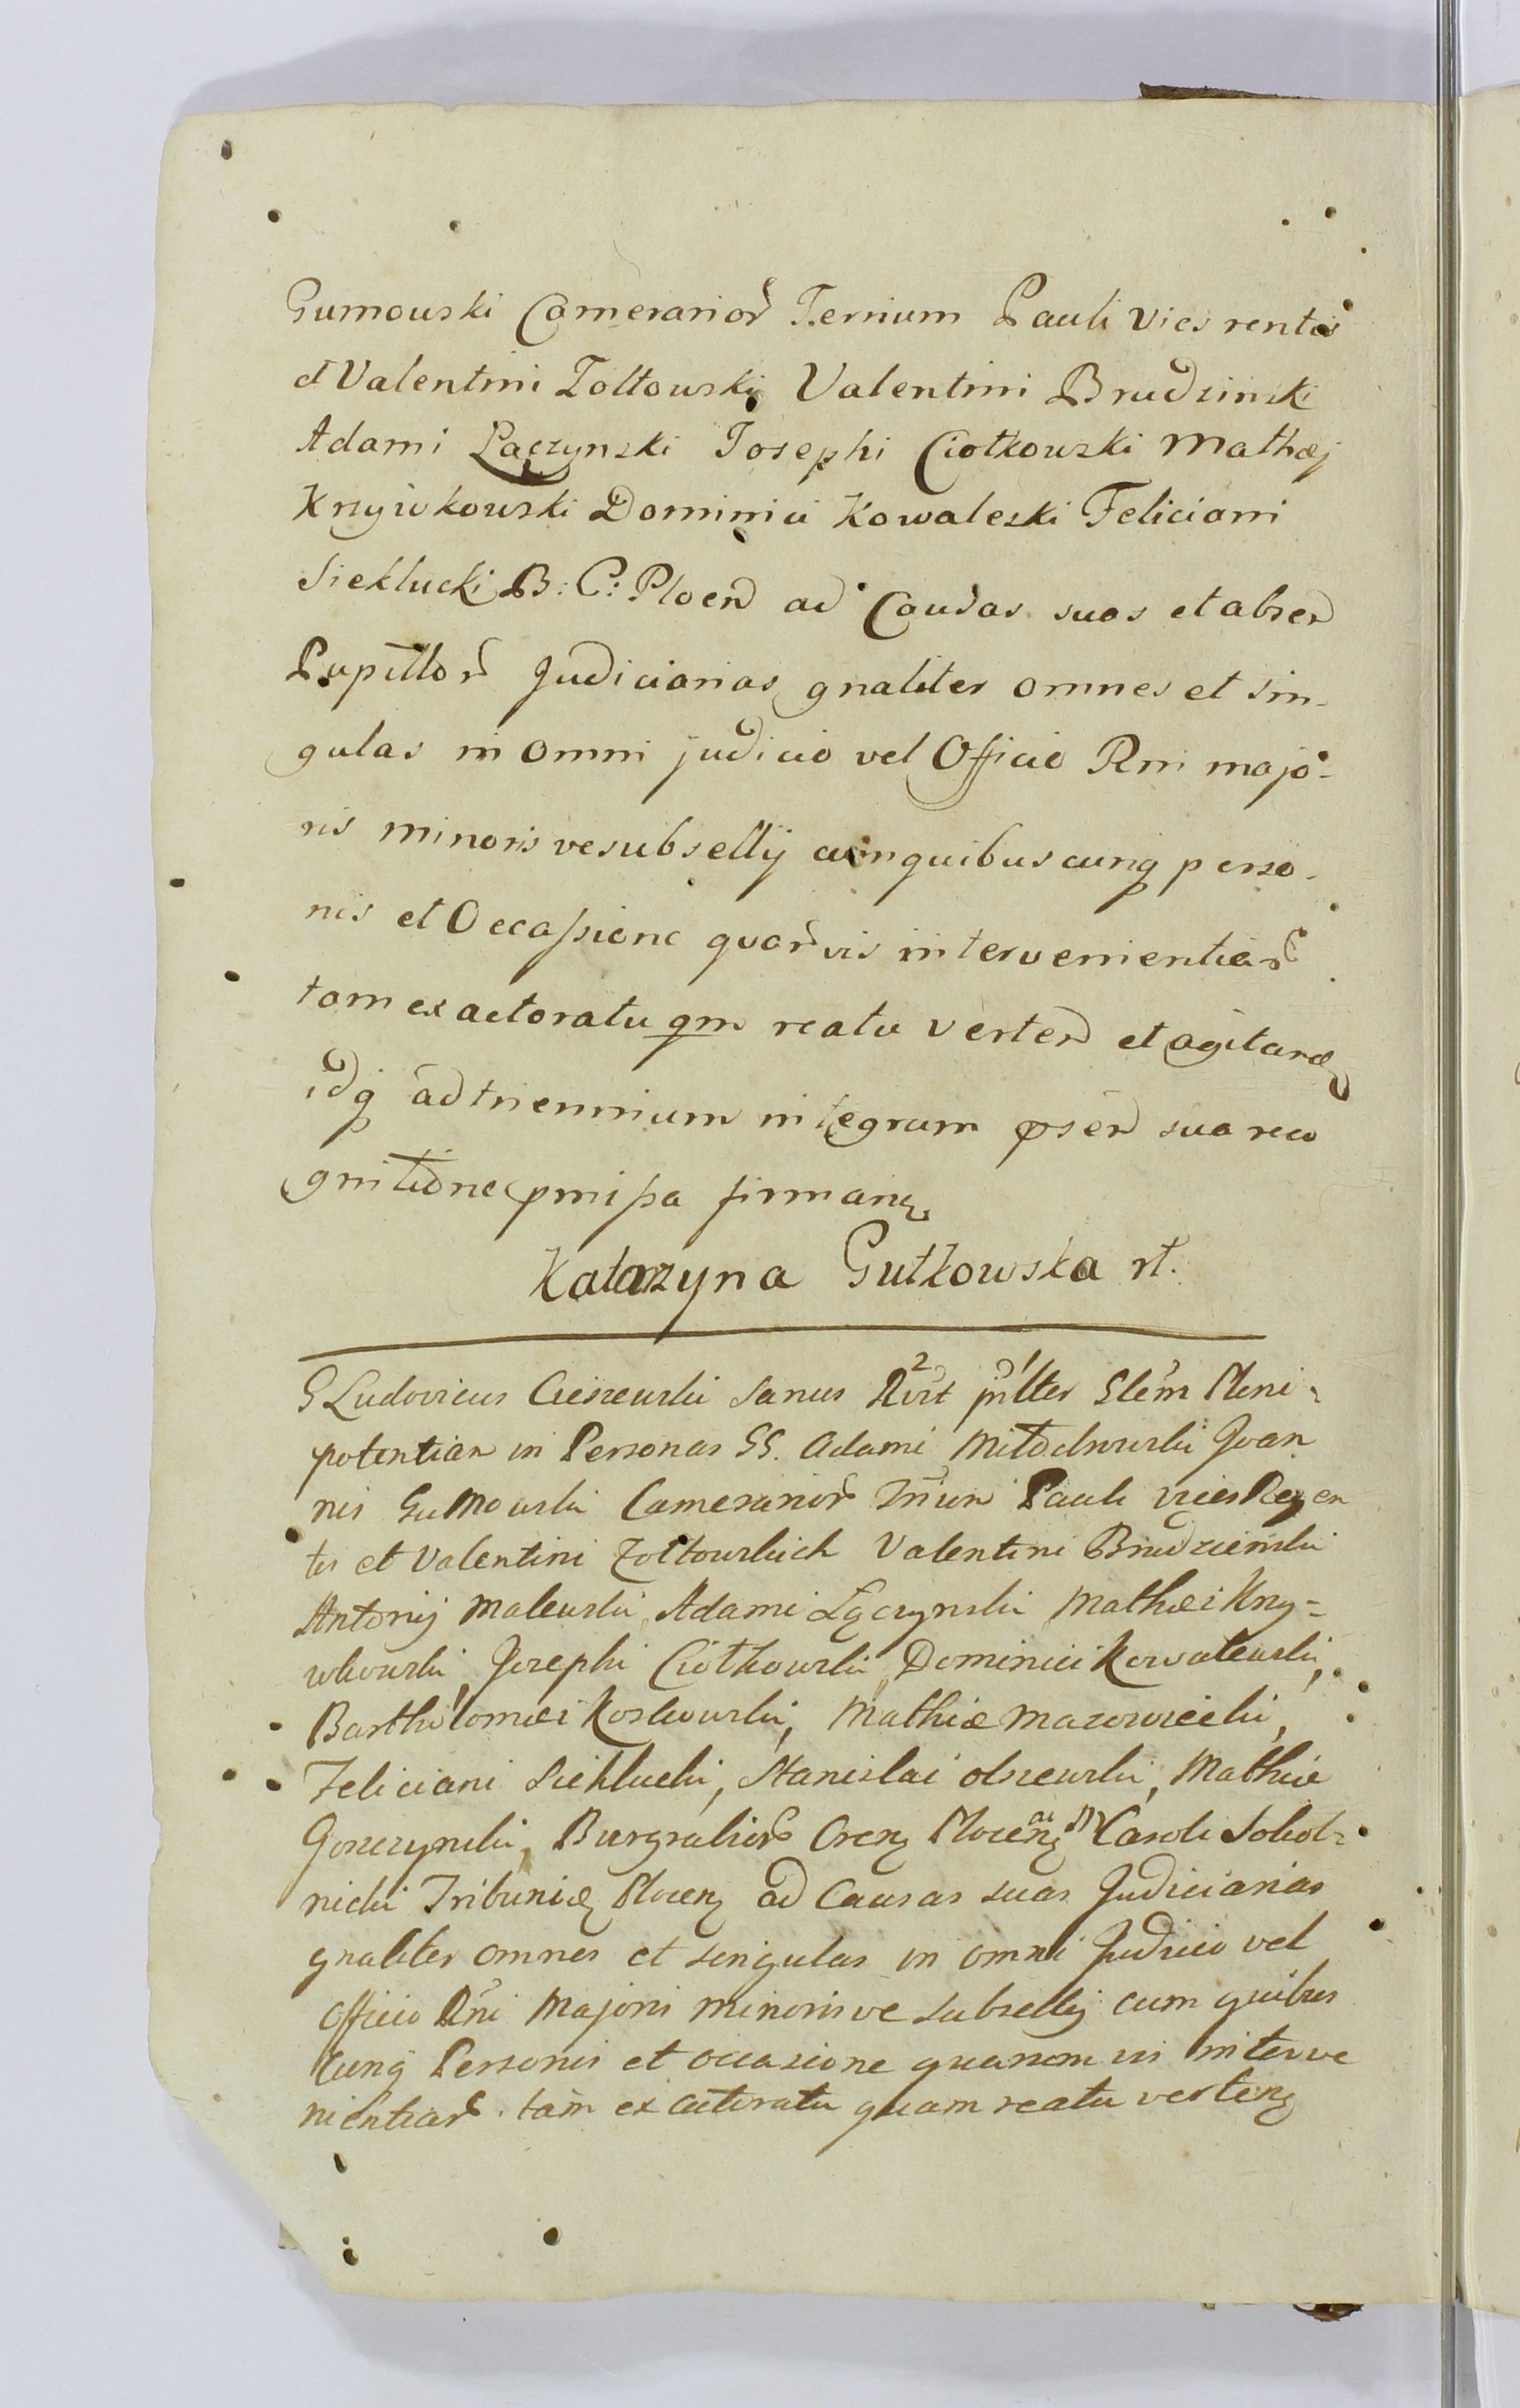 Gumowski Camerarior Ternium Pauli Vices rentis
et Valentini Zołtowski Valentini Brudzinski
Adami Łączynski Josephi Ciotkowski Mathæj
Krzywkowski Dominici Kowaleski Feliciani
Sieklucki B: C: Plocen ad Causas suas et absen
Pupillor Judiciarias gnaliter omnes et sin-
gulas in omni judicio vel Officio Rni majo-
ris minorisve subsellij cum quibus cunq perso-
nis et Occassione quarvis intervenientiar
tam ex actoratu qm reatu verten et agitan
idq ad triennium integrum psen sua reco
gnitione pmissa firman
Katarzyna Gutkowska rt.
G Ludovicus Cieszewski sanus Rort pnlter Slem Pleni-
potentiam in Personas GG. Adami Młodchowski Joan
nis Gumowski Camerarior Trium Pauli vices Regen
tis et Valentini Zołtowskich Valentini Brudzieński
Antonij Malewski, Adami Łączynski Mathæi Krzy-
wkowski, Josephi Ciotkowski, Dominici Kowalewski,
Bartholomæi Koskowski, Mathiæ Mazowiecki,
Feliciani Sieklucki, Stanislai Olszewski, Mathiæ
Goszczynski, Burgrabior Cren Plocen ac Caroli Sokol-
nicki Tribunidæ Plocen ad Causas suas Judiciarias
gnaliter omnes et singulas in omni Judicio vel
Officio Rni Majoris minorisve subsellij cum quibus
cunq Personis et occasione quarumvis interve
nientiar tam ex actoratu quam reatu verten